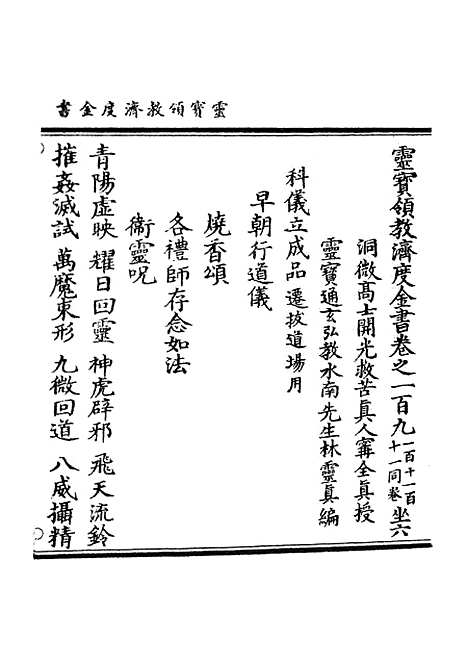 靈寶領教濟度金書
靈寶領教濟度金書卷之一百九一百十一百十一同卷 坐六
洞微高士開光救苦真人甯全真授
靈寶通玄弘教水南先生林靈真編
科儀立成品 遷拔道場用
早朝行道儀
燒香頌
各禮師存念如法
衞靈呪
青陽虛映 耀日回靈 神虎辟邪 飛天流鈴
摧姦滅試 萬魔束形 九微回道 八威攝精